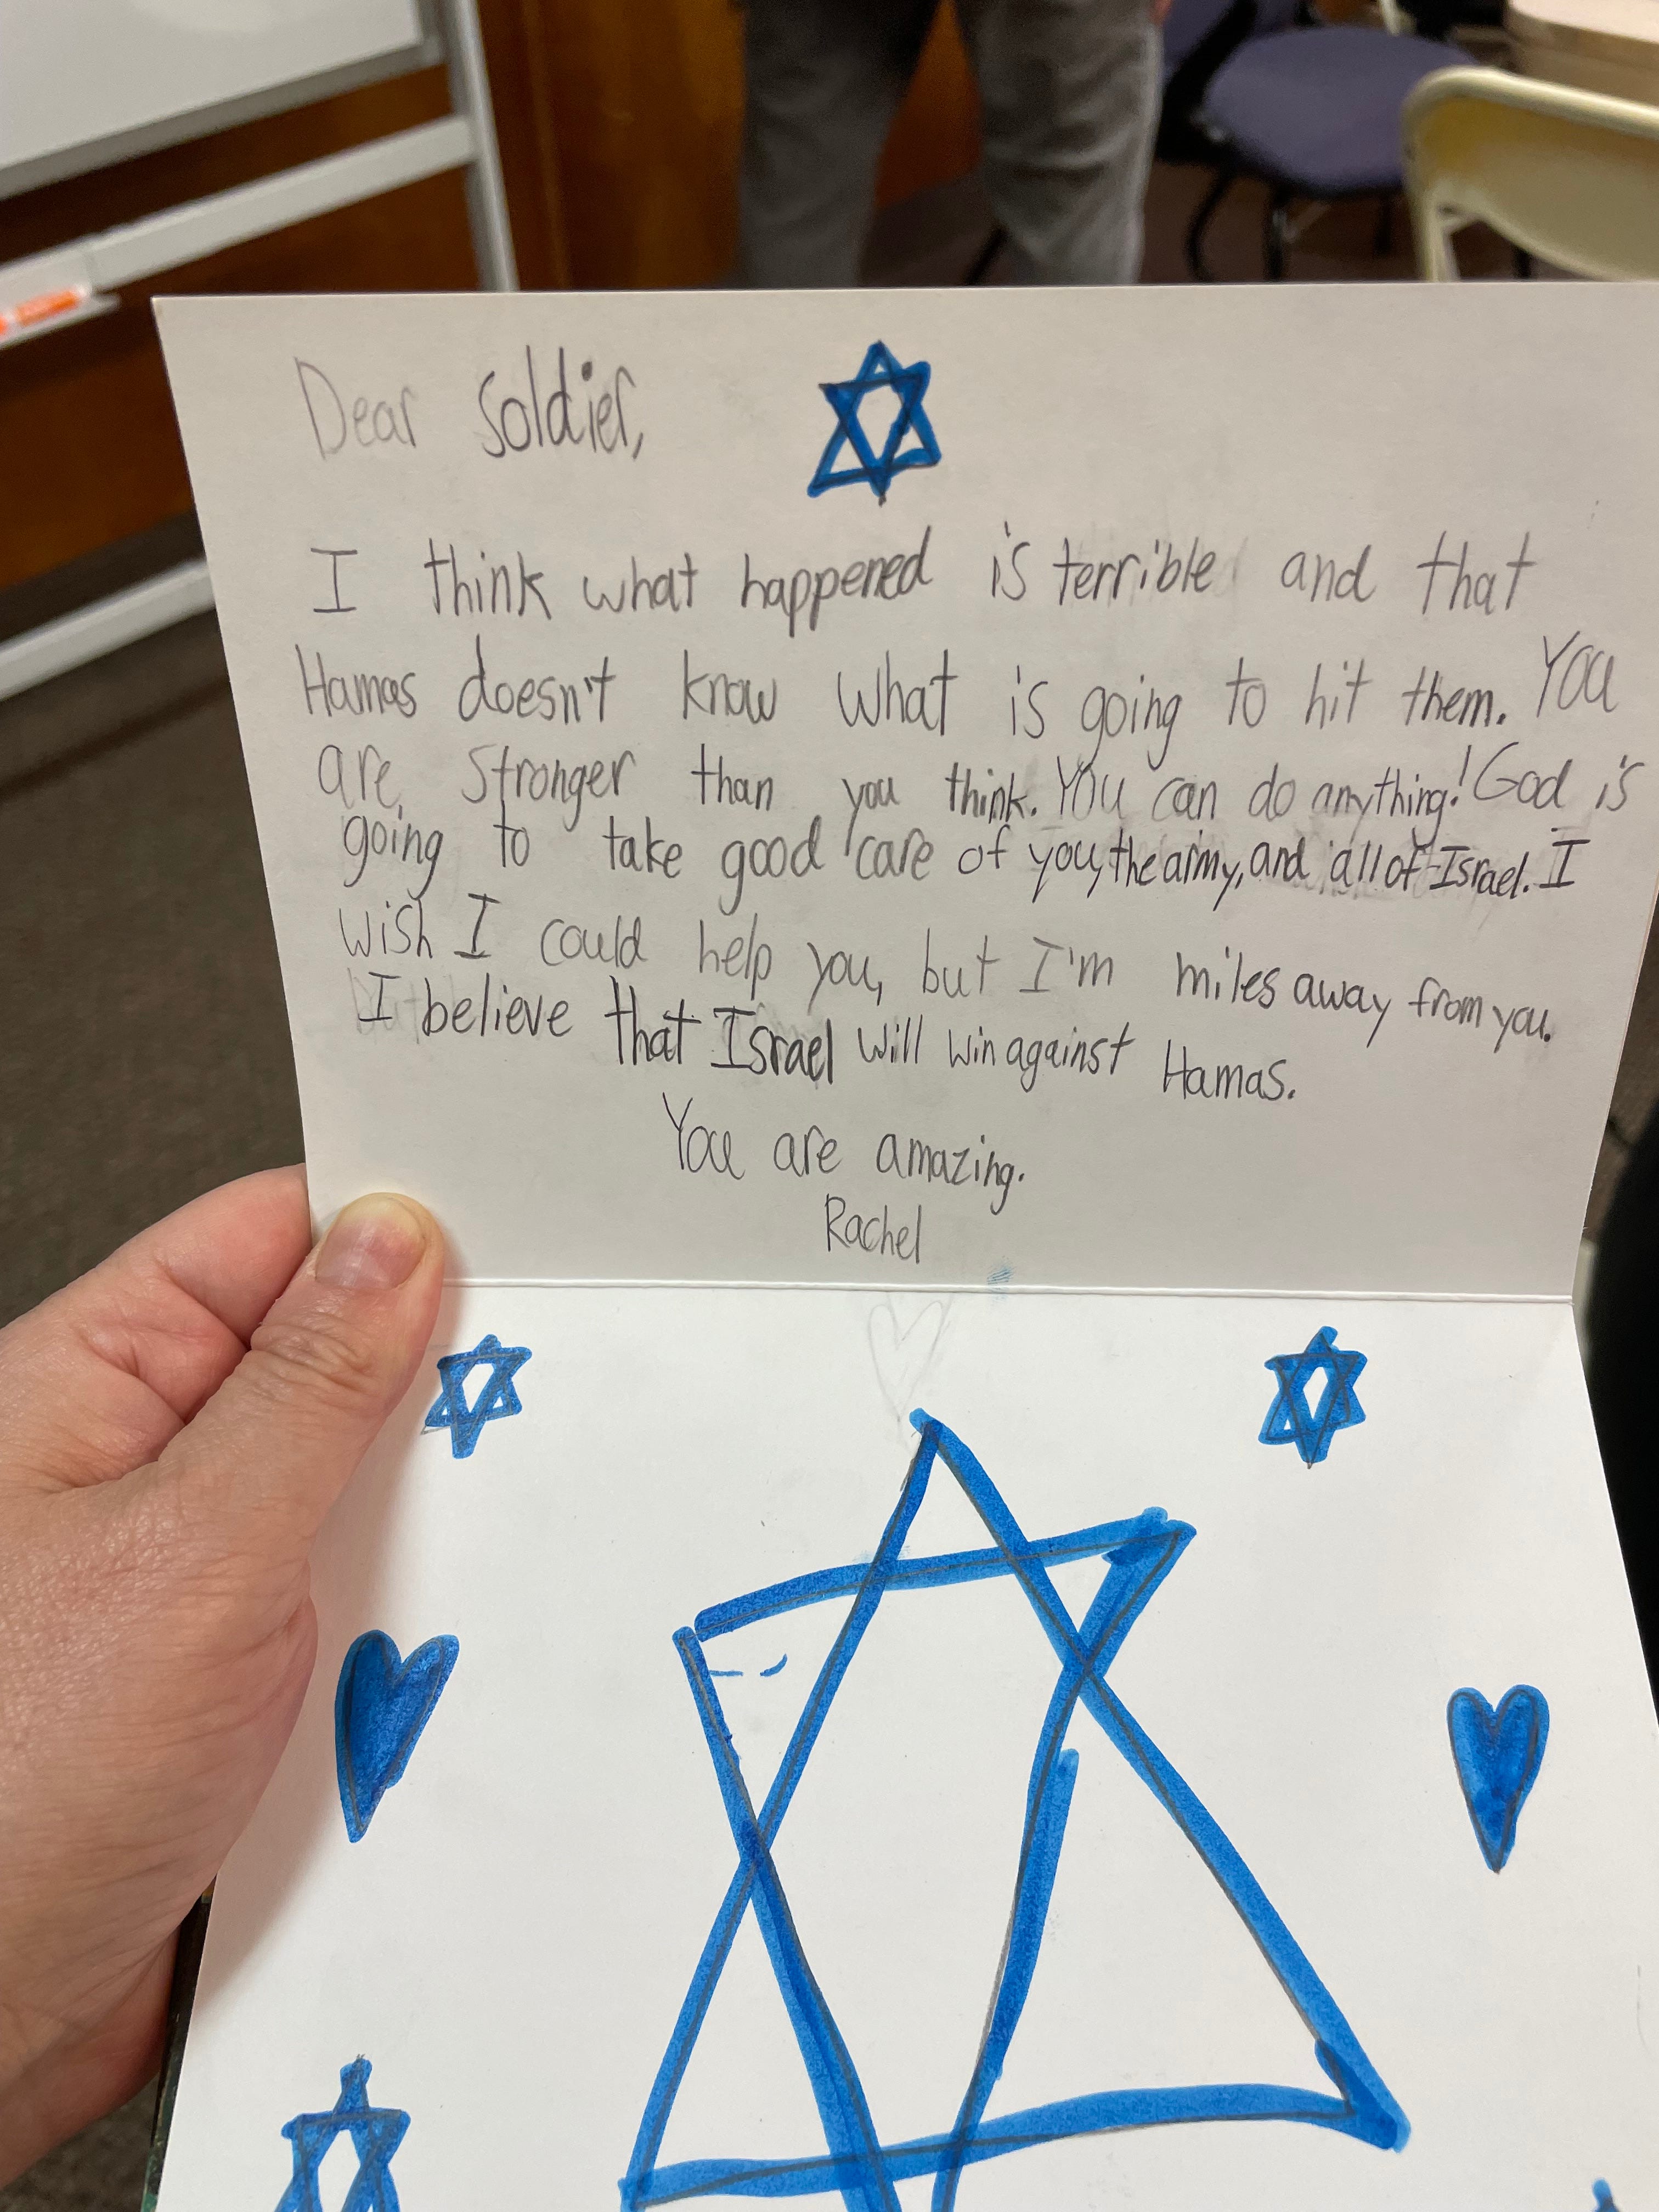 Dear Soldier,
I think what happened is terrible and that
Hamas doesn't know what is going to hit them. You
are stronger than you think. You can do anything! God is
going to take good care of you, the army, and all of Israel. I
wish I could help you, but I'm miles away from you.
I believe that Israel will win against Hamas.
You are amazing.
Rachel